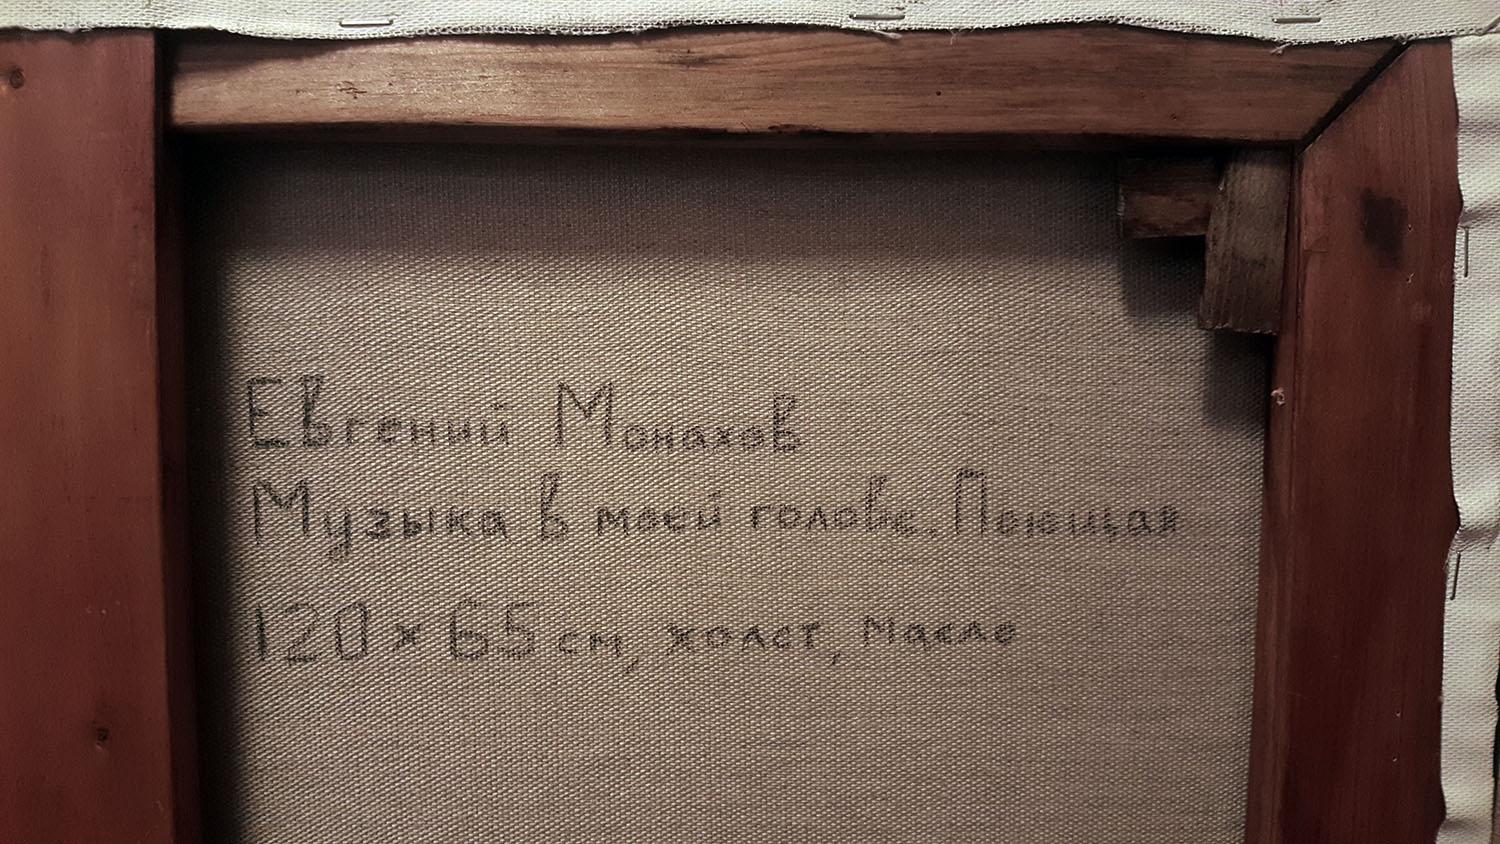 Евгений Монахов
Музыка в моей голове. Поющая
120 x 65 см, холст, масло